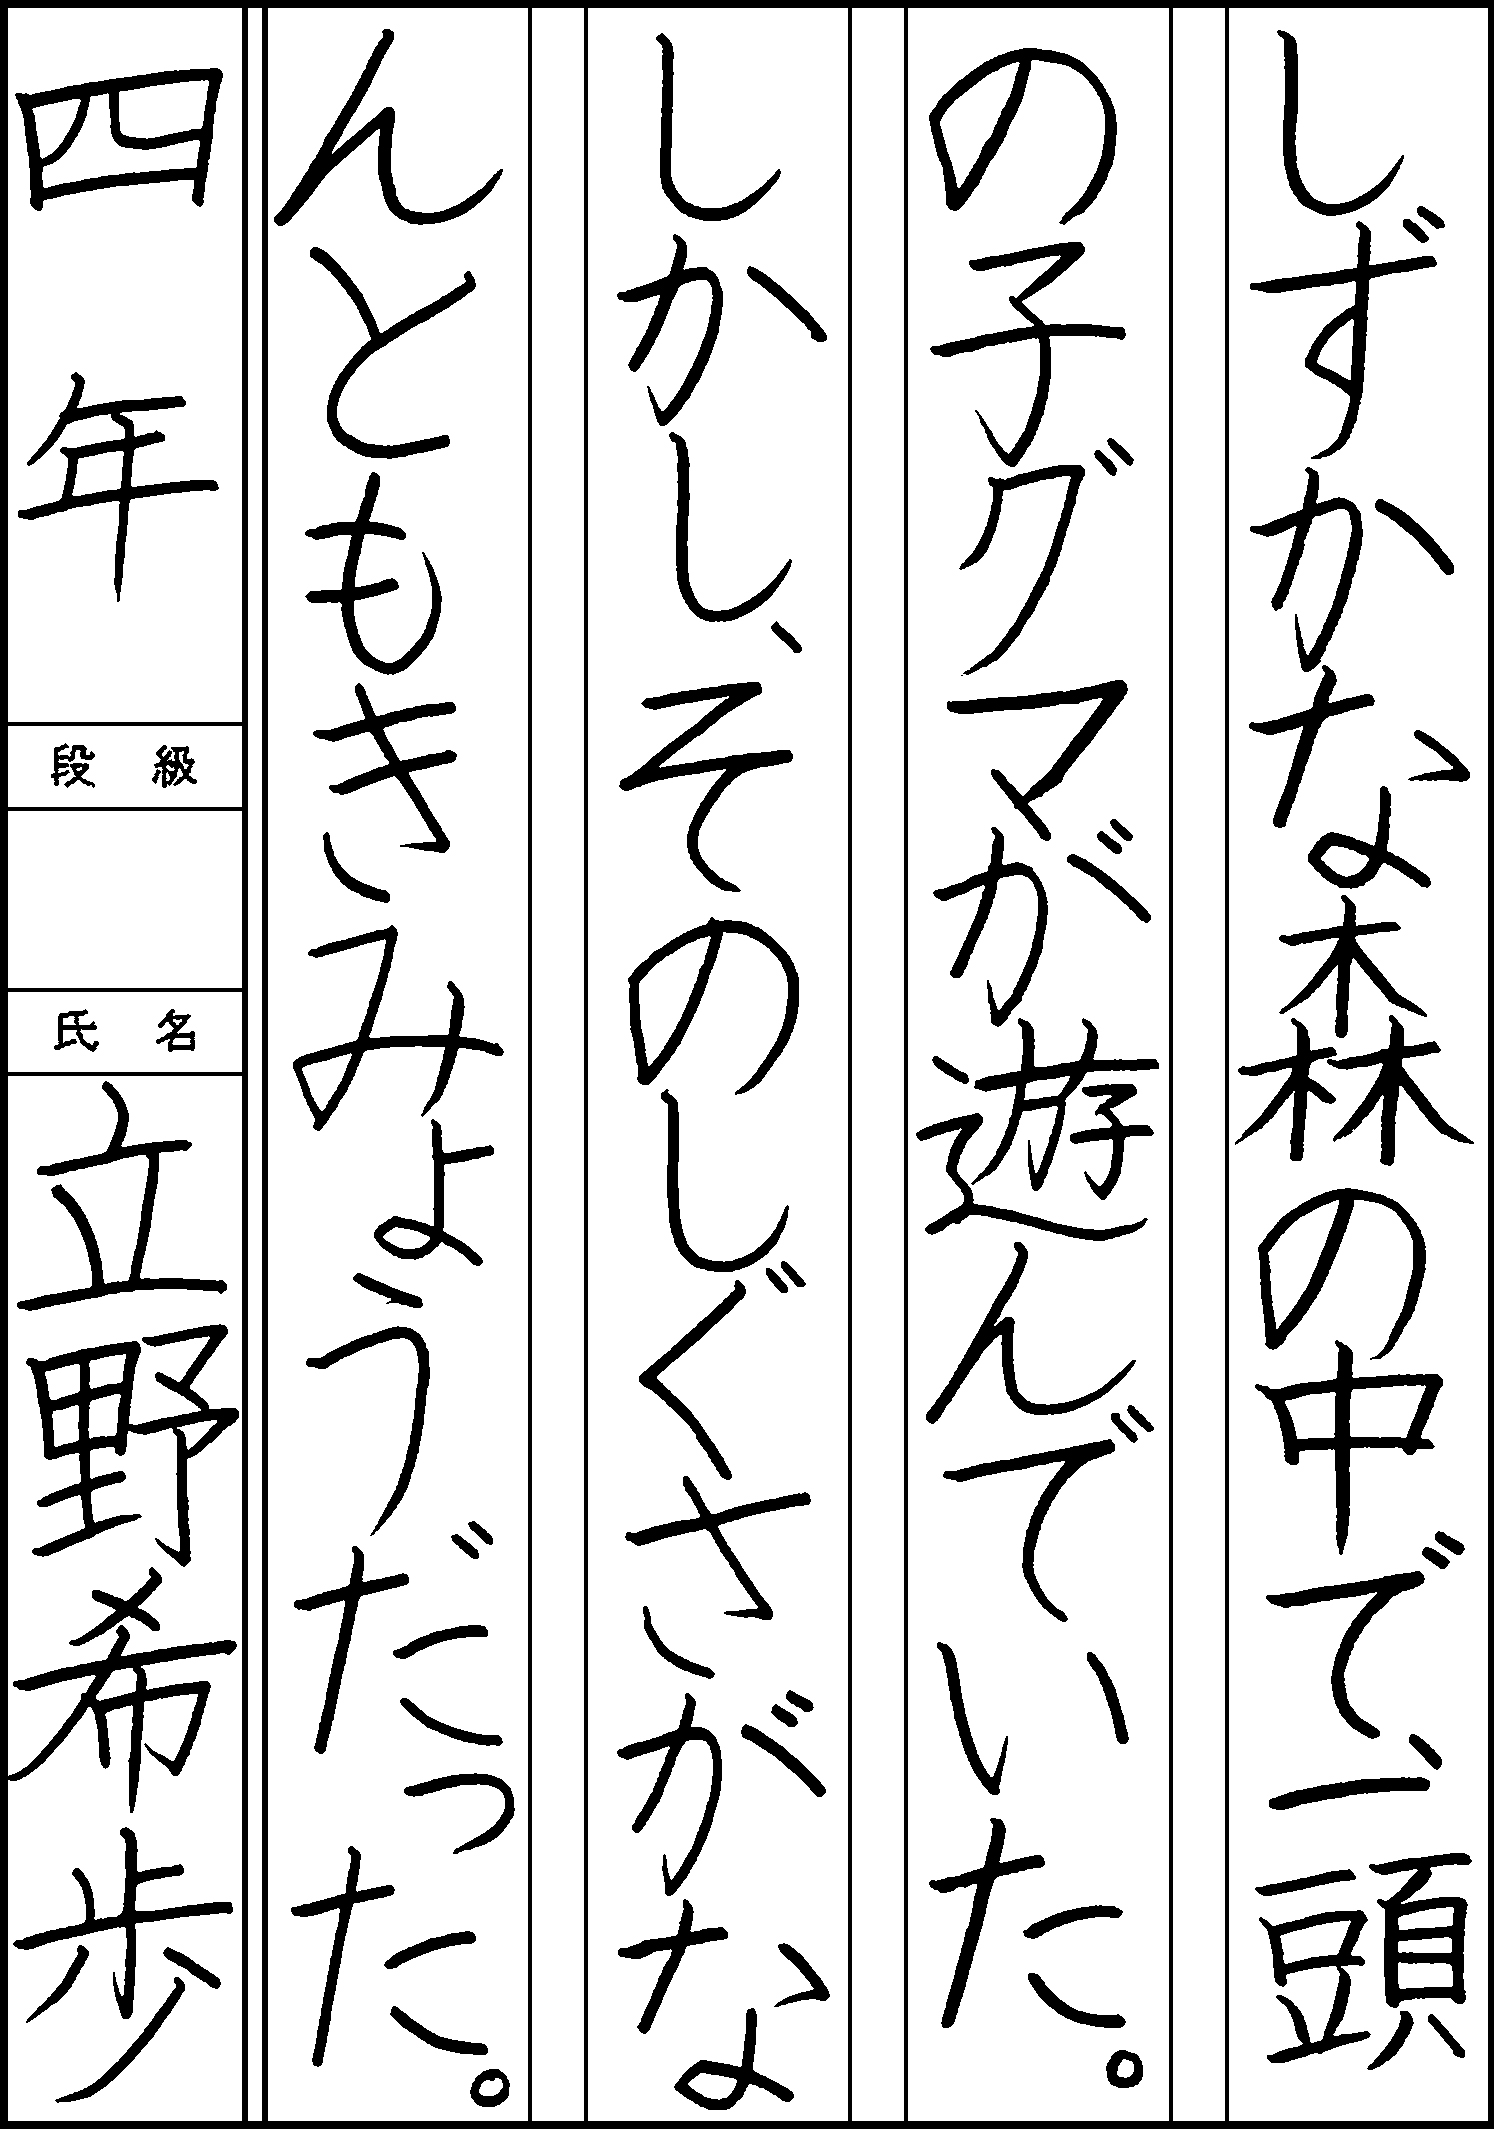 しずかな森の中で、一頭
の子グマが遊んでいた。
しかし、そのしぐさがな
んともきみょうだった。
四年
段級
氏名
立野希歩